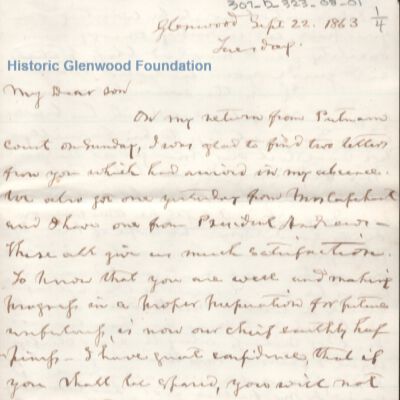 307-D-323-08-01
1/4
Glenwood Sept. 22. 1863
Tuesday.
Historic Glenwood Foundation
My Dear son
On my return from Putnam
court on Sunday, I was glad to find two letters
from you which had arrived in my absence.
We also got one yesterday from Mrs Capehart
and I have one from President Andrews –
These all give us much satisfaction.
To know that you are well and making
progress in a proper preparation for future
usefulness, is now our chief earthly hap
piness – I have great confidence that if
you shall be spared, you will not